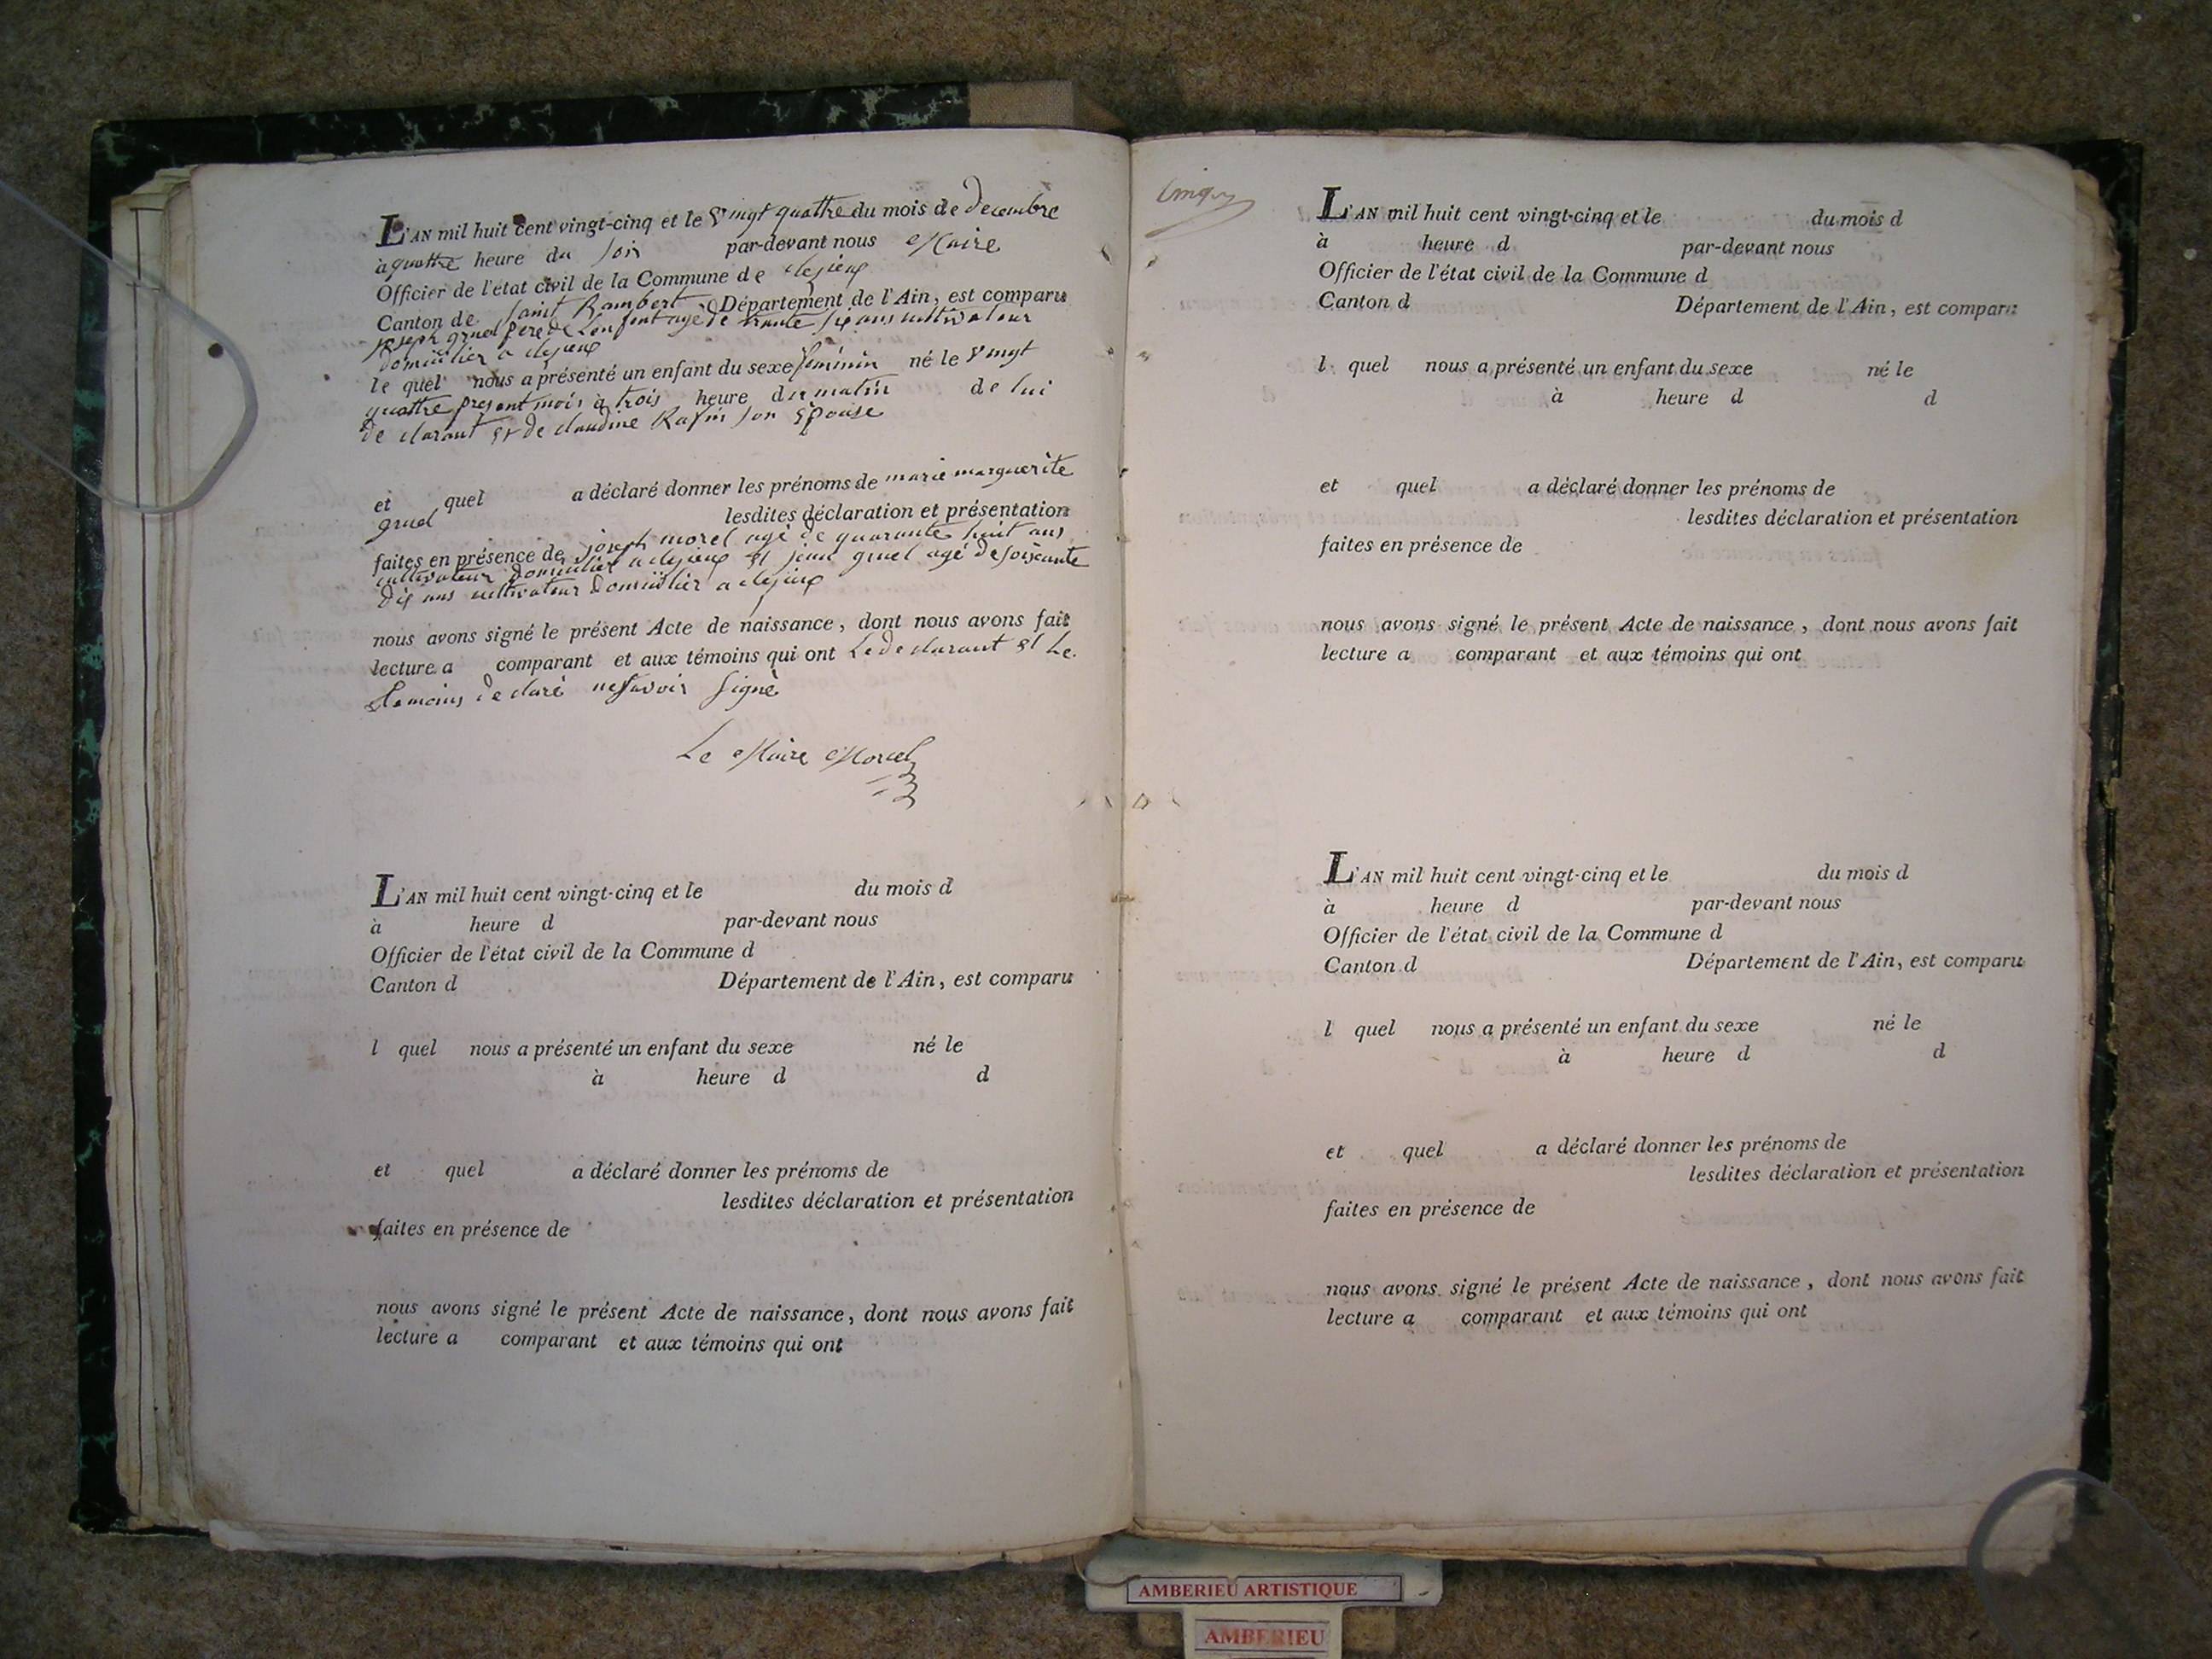 L'AN mil huit cent vingt-cinq et le vingt quattre du mois de decembre
à quattre heure du soir par-devant nous Maire
Officier de l'état civil de la Commune de cleyieux
Canton de saint Rambert Département de l'Ain, est comparu
joseph gruel pere de Lenfant agé de trante six ans cultivateur
domicilier a cleyieux
le quel nous a présenté un enfant du sexe feminin né le vingt
quattre present mois à trois heure du matin de lui
de clarant et de claudine son epouse
et quel a déclaré donner les prénoms de marie marguerite
gruel lesdites déclaration et présentation
faites en présence de joseph morel agé de quarante huit ans
cultivateur domicilier a cleyieux et jean gruel agé de soixante
dix ans cultivateur domicilier a cleyieux
nous avons signé le présent Acte de naissance, dont nous avons fait
lecture a comparant et aux témoins qui ont Le de clarant et Le
temoins de claré ne savoir signé
Le Maire Morel
L'AN mil huit cent vingt-cinq et le du mois d
à heure d par-devant nous
Officier de l'état civil de la Commune d
Canton d Département de l'Ain, est comparu
l quel nous a présenté un enfant du sexe né le
à heure d d
et quel a déclaré donner les prénoms de
lesdites déclaration et présentation
faites en présence de
nous avons signé le présent Acte de naissance, dont nous avons fait
lecture a comparant et aux témoins qui ont
L'AN mil huit cent vingt-cinq et le du mois d
à heure d par-devant nous
Officier de l'état civil de la Commune d
Canton d Département de l'Ain, est comparu
l quel nous a présenté un enfant du sexe né le
à heure d d
et quel a déclaré donner les prénoms de
lesdites déclaration et présentation
faites en présence de
nous avons signé le présent Acte de naissance, dont nous avons fait
lecture a comparant et aux témoins qui ont
L'AN mil huit cent vingt-cinq et le du mois d
à heure d par-devant nous
Officier de l'état civil de la Commune d
Canton d Département de l'Ain, est comparu
l quel nous a présenté un enfant du sexe né le
à heure d d
et quel a déclaré donner les prénoms de
lesdites déclaration et présentation
faites en présence de
nous avons signé le présent Acte de naissance, dont nous avons fait
lecture a comparant et aux témoins qui ont
AMBERIEU ARTISTIQUE
AMBERIEU